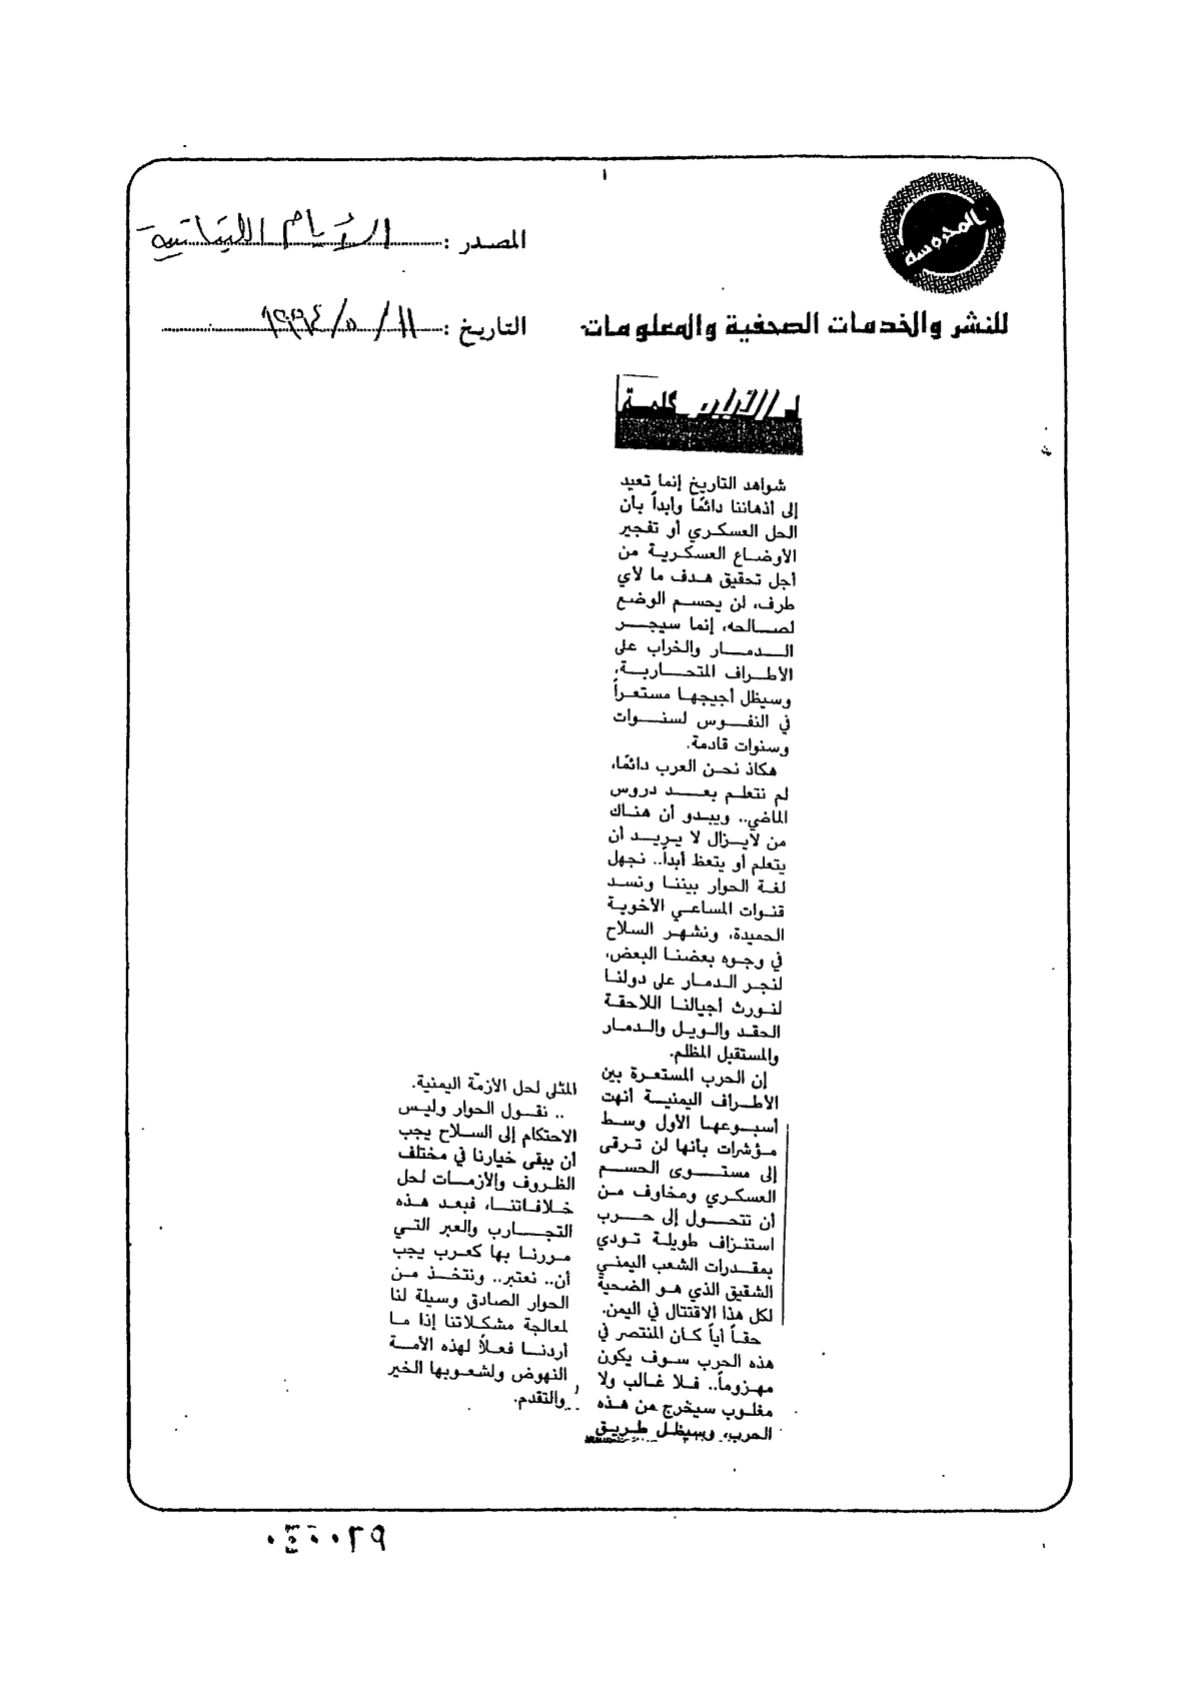 المحروسة
المصدر :
التاريخ : ١١/٥/١٩٩٤
للنشر والخدمات الصحفية والمعلومات
كلمة
شواهد التاريخ إنما تعيد
إلى أذهاننا دائمًا وأبداً بأن
الحل العسكري أو تفجير
الأوضاع العسكرية من
أجل تحقيق هدف ما لأي
طرف، لن يحسم الوضع
لصالحه، إنما سيجر
الدمار والخراب على
الأطراف المتحاربة،
وسيظل أجيجها مستعراً
في النفوس لسنوات
وسنوات قادمة.
هكاذ نحن العرب دائمًا،
لم نتعلم بعد دروس
الماضي.. ويبدو أن هناك
من لايزال لا يريد أن
يتعلم أو يتعظ أبداً.. نجهل
لغة الحوار بيننا ونسد
قنوات المساعي الأخوية
الحميدة، ونشهر السلاح
في وجوه بعضنا البعض،
لنجر الدمار على دولنا
لنورث أجيالنا اللاحقة
الحقد والويل والدمار
والمستقبل المظلم.
إن الحرب المستعرة بين
الأطراف اليمنية أنهت
أسبوعها الأول وسط
مؤشرات بأنها لن ترقى
إلى مستوى الحسم
العسكري ومخاوف من
أن تتحول إلى حرب
استنزاف طويلة تودي
بمقدرات الشعب اليمني
الشقيق الذي هو الضحية
لكل هذا الاقتتال في اليمن.
حقاً أياً كان المنتصر في
هذه الحرب سوف يكون
مهزوماً.. فلا غالب ولا
مغلوب سيخرج من هذه
الحرب، وسيظل طريق
المثلى لحل الأزمة اليمنية.
.. نقول الحوار وليس
الاحتكام إلى السلاح يجب
أن يبقى خيارنا في مختلف
الظروف والأزمات لحل
خلافاتنا، فبعد هذه
التجارب والعبر التي
مررنا بها كعرب يجب
أن.. نعتبر.. ونتخذ من
الحوار الصادق وسيلة لنا
لمعالجة مشكلاتنا إذا ما
أردنا فعلاً لهذه الأمة
النهوض ولشعوبها الخير
والتقدم.